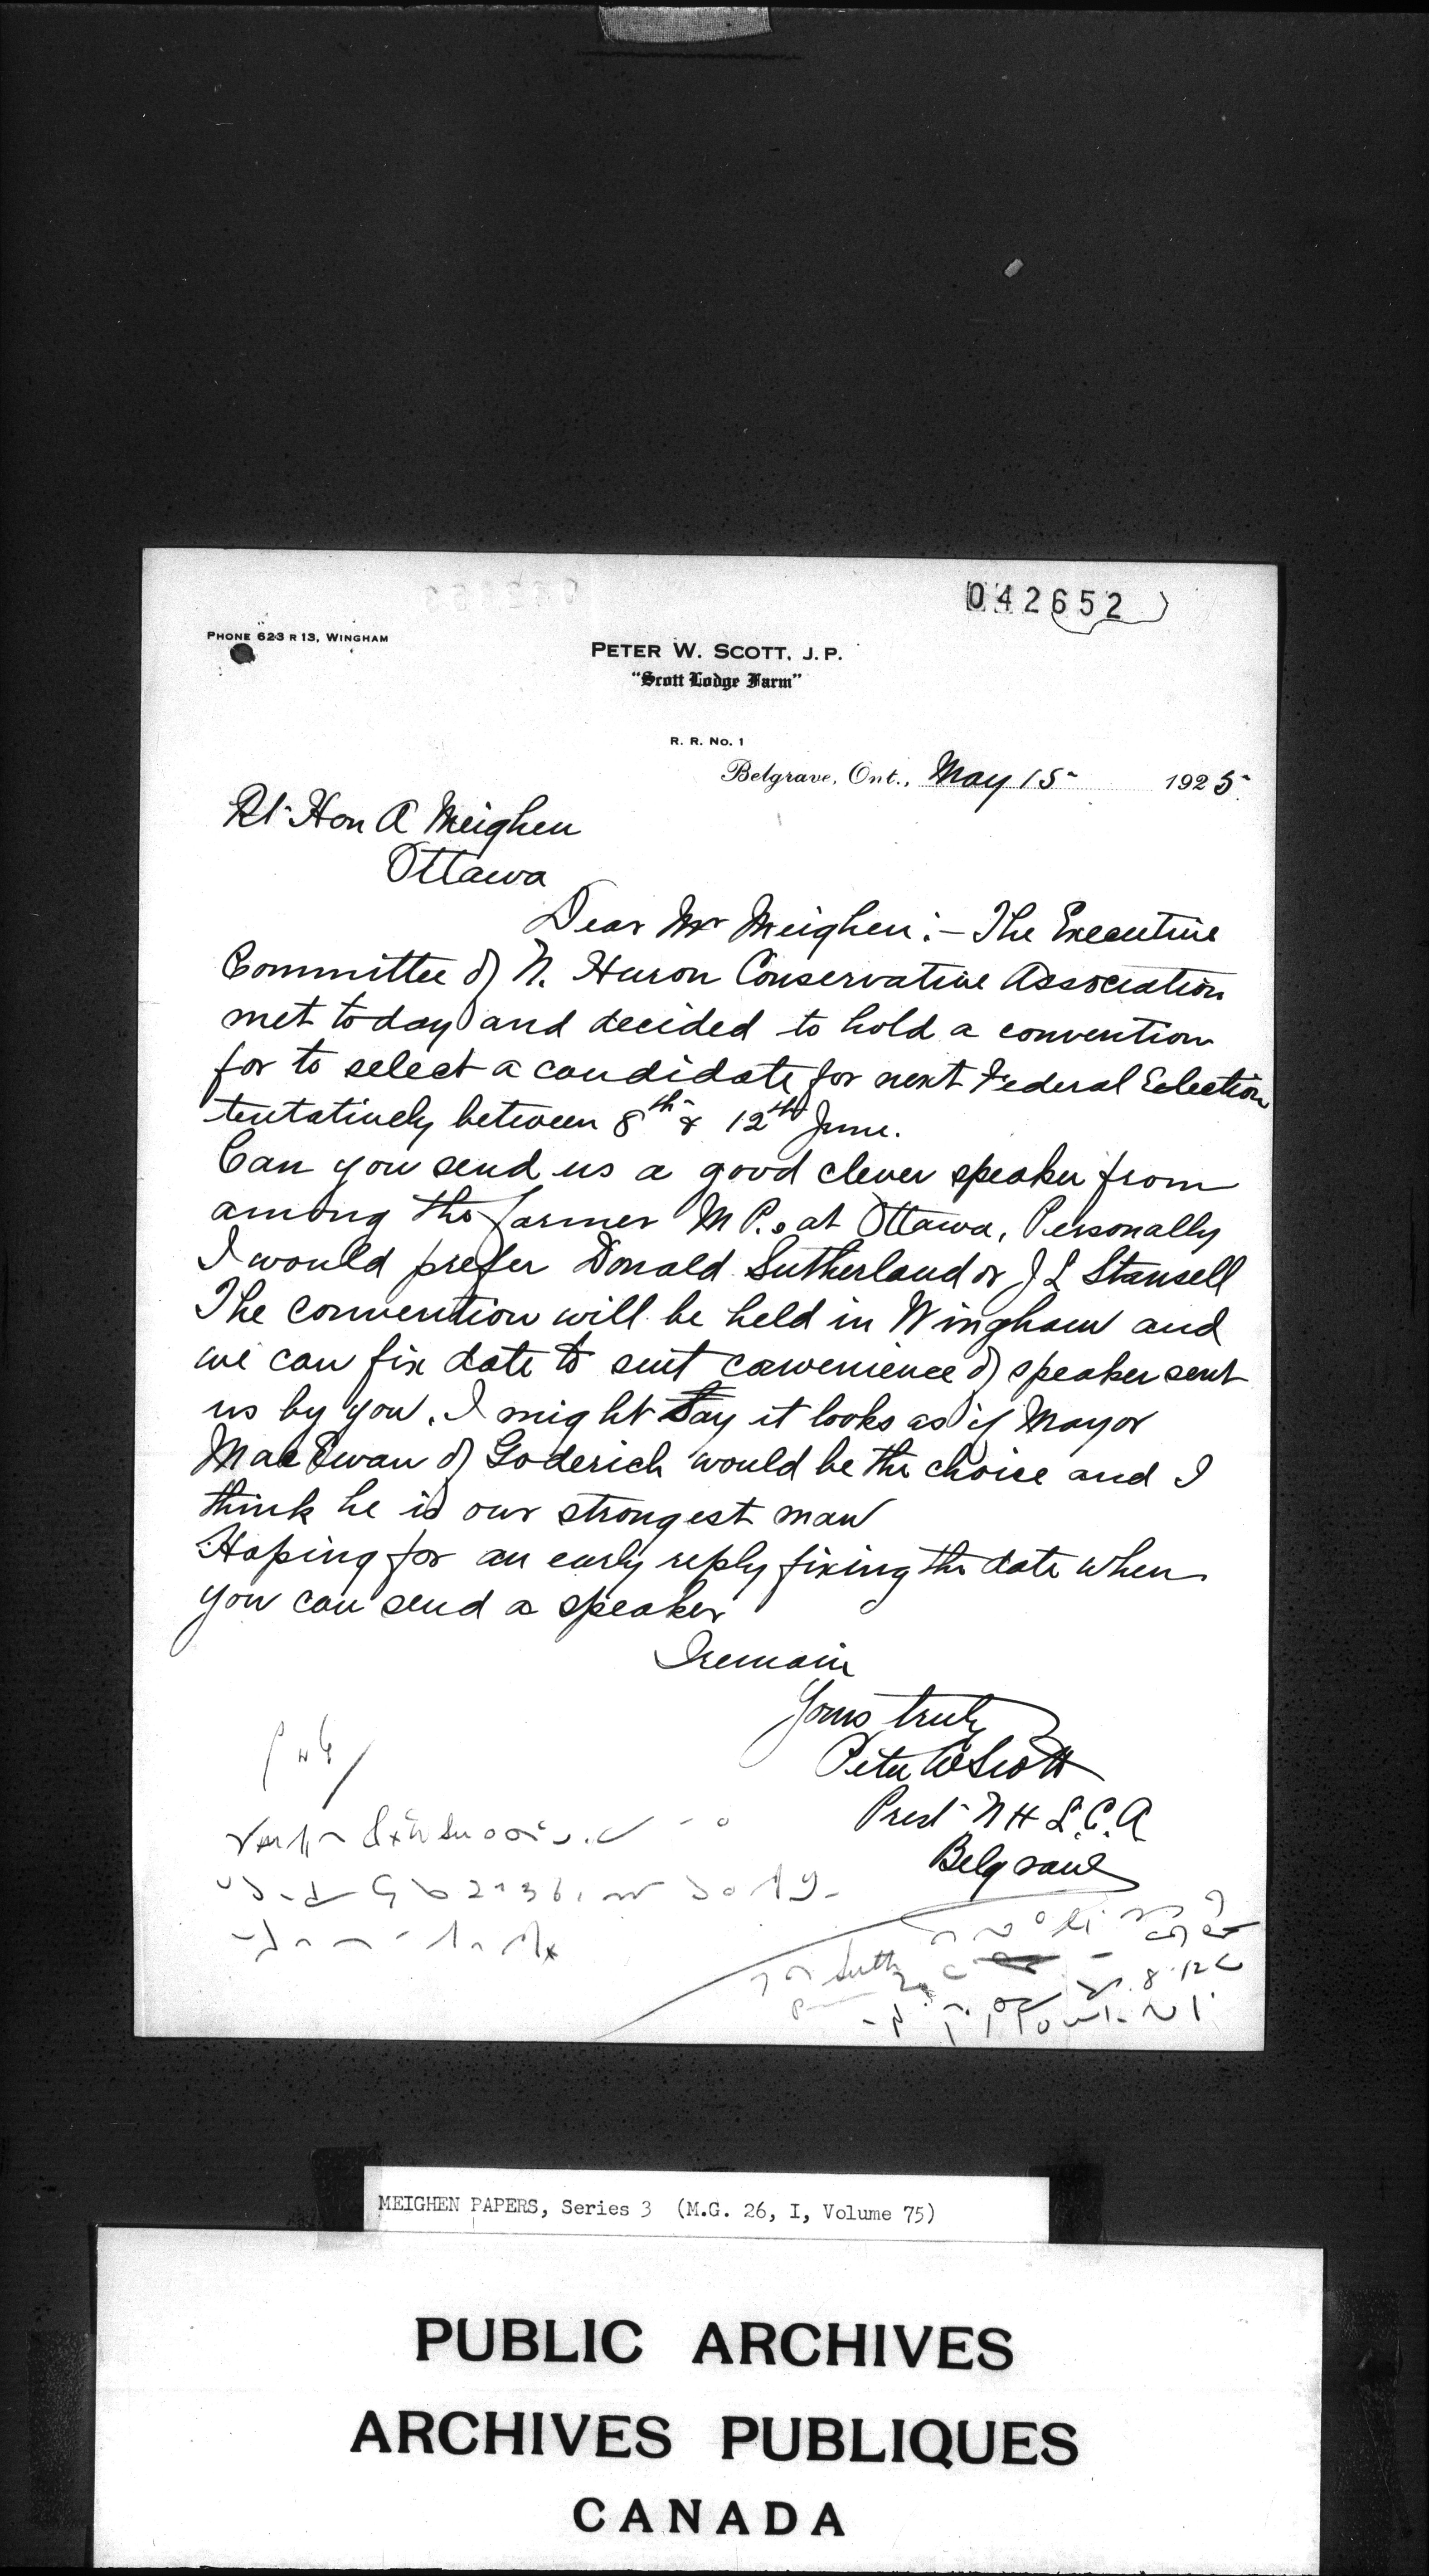 042652
PHONE 623 R 13, WINGHAM
PETER W. SCOTT, J.P.
"Scott Lodge Farm"
R. R. No. 1
Belgrave, Ont., May 15 1925
Rt Hon A Meighen
Ottawa
Dear Mr Meighen:- The Executive
Committee of N. Huron Conservative Association
met today and decided to hold a convention
for to select a candidate for next Federal Eclection
tentatively between 8th & 12th June.
Can you send us a good clever speaker from
among the farmer M P.s at Ottawa, Personally
I would prefer Donald Sutherland or J L Stansell
The convention will be held in Wingham and
we can fix date to suit convenience of speaker sent
us by you. I might say it looks as if Mayor
MacEwan of Goderich would be the choice and I
think he is our strongest man
Hoping for an early reply fixing the date when
you can send a speaker
I remain
Yours truly
Peter W Scott
Prest N H L.C.A
Belgrave
Suth
8-12
MEIGHEN PAPERS, Series 3 (M.G. 26, I, Volume 75)
PUBLIC ARCHIVES
ARCHIVES PUBLIQUES
CANADA